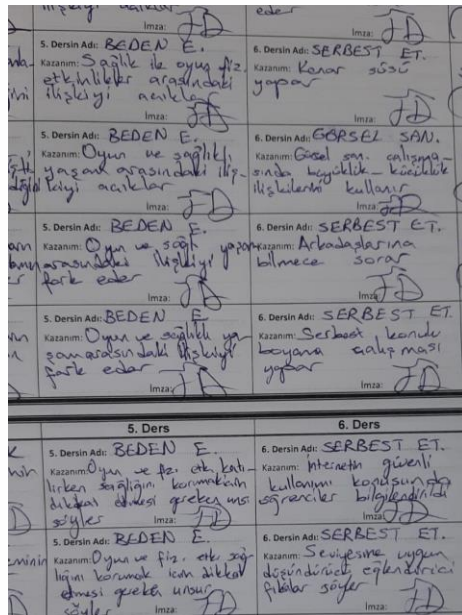 ilişkiyi açıklar
eder
İmza:
İmza:
5. Dersin Adı: BEDEN E.
Kazanım: Sağlık ile oyun fiz.
etkinlikler arasındaki
ilişkiyi açıklar
İmza:
6. Dersin Adı: SERBEST ET.
Kazanım: Kenar süsü
yapar
İmza:
5. Dersin Adı: BEDEN E.
Kazanım: Oyun ve sağlıklı
yaşam arasındaki iliş-
kiyi açıklar
İmza:
6. Dersin Adı: GÖRSEL SAN.
Kazanım: Görsel san. çalışma-
sında büyüklük-küçüklük
ilişkilerini kullanır
İmza:
5. Dersin Adı: BEDEN E.
Kazanım: Oyun ve sağlı yaşam
arasındaki ilişkiyi
fark eder
İmza:
6. Dersin Adı: SERBEST ET.
Kazanım: Arkadaşlarına
bilmece sorar
İmza:
5. Dersin Adı: BEDEN E.
Kazanım: Oyun ve sağlıklı ya
şam arasındaki ilişkiyi
fark eder
İmza:
6. Dersin Adı: SERBEST ET.
Kazanım: Serbest konulu
boyama çalışması
yapar
İmza:
5. Ders
6. Ders
5. Dersin Adı: BEDEN E.
Kazanım: Oyun ve fizi etk. katı
lırken sağlığını korumak için
dikkat etmesi gereken unsu
söyler
İmza:
6. Dersin Adı: SERBEST ET.
Kazanım: İnternetin güvenli
kullanımı konusunda
öğrenciler bilgilendirildi
İmza:
5. Dersin Adı: BEDEN E.
Kazanım: Oyun ve fiz. etk. sağ
lığını korumak için dikkat
etmesi gereken unsur
söyler
İmza:
6. Dersin Adı: SERBEST ET.
Kazanım: Seviyesine uygun
düşündürücü, eğlendirici
fıkralar söyler
İmza: